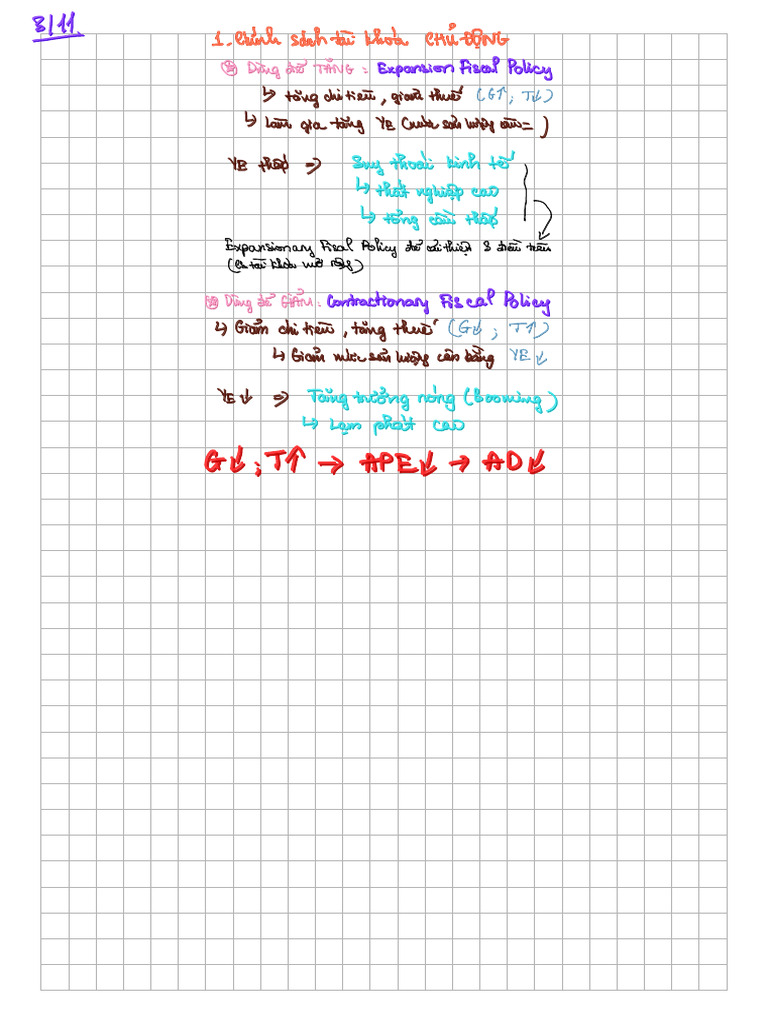 3/11.
1. Chính sách tài khoá CHỦ ĐỘNG
Dùng để TĂNG: Expansion Fiscal Policy
↳ tăng chi tiêu, giảm thuế (G↑; T↓)
↳ Làm gia tăng YE (mức sản lượng cân = )
YE thấp ⇒ Suy thoái kinh tế
↳ thất nghiệp cao
↳ tổng cầu thấp
Expansionary Fiscal Policy để cải thiện 3 điều trên
(cs tài khoá mở rộng)
Dùng để GIẢM: Contractionary Fiscal Policy
↳ Giảm chi tiêu, tăng thuế (G↓; T↑)
↳ Giảm mức sản lượng cân bằng YE↓
YE↓ ⇒ Tăng trưởng nóng (Booming)
↳ Lạm phát cao
G↓; T↑ → APE↓ → AD↓